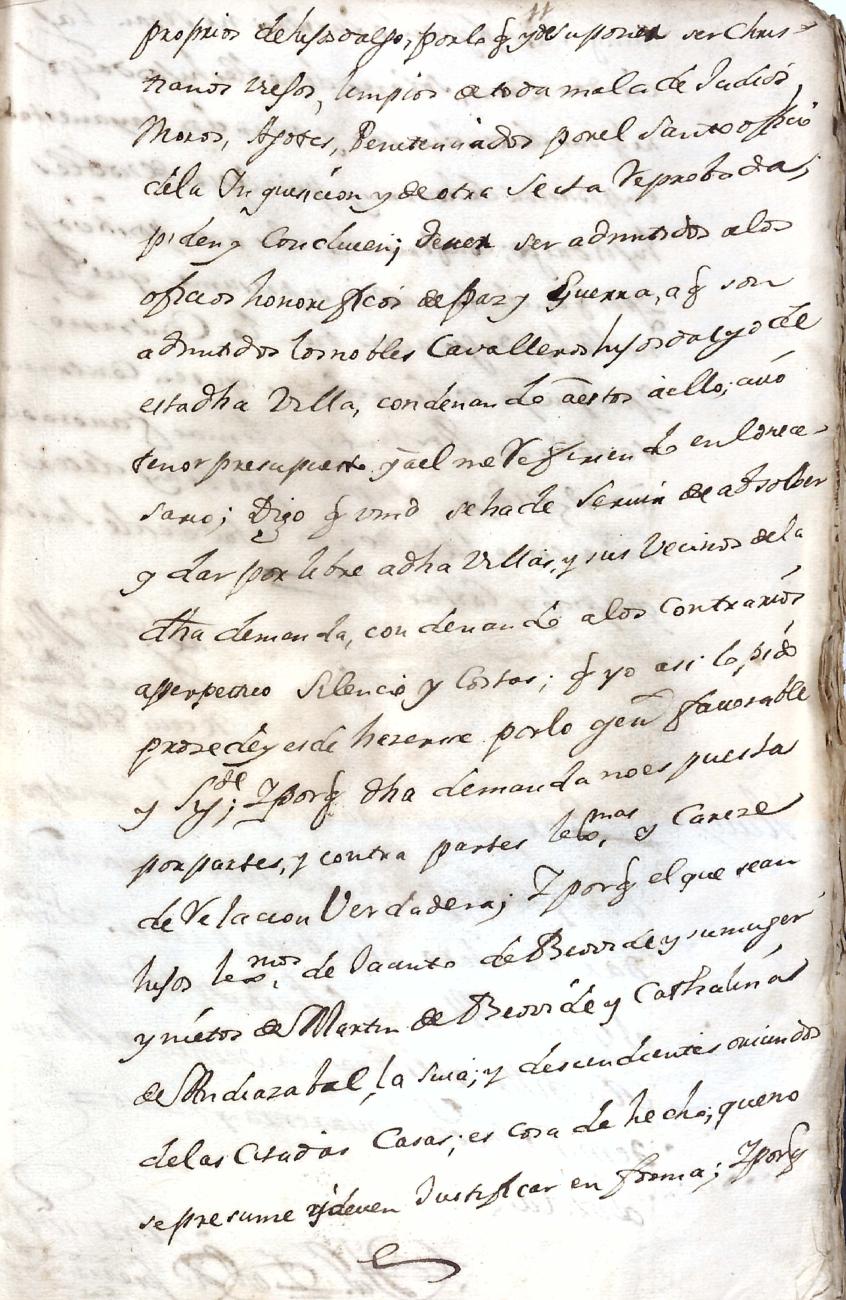 proprios de hijosdalgo, por lo q̃ y de suponer ser Chris-
tianos viejos, limpios de toda mala de Judios,
Moros, Agotes, Penitenciados por el Santo offiçio
de la Inquisicion y de otra secta reprobada;
piden y Concluien; deuen ser admitidos a los
oficios honorificos de Paz y Guerra, a q̃ son
admitidos los nobles Cavalleros hijosdalgo de
esta dha Villa, condenando a estos a ello; cuio
tenor presupuesto y a el me refiriendo en lo nece-
sario; Digo q̃ vmd se ha de seruir de absolber
y dar por libre a dha Villa, y sus Vecinos de la
dha demanda, condenando a los Contrarios
a perpetuo Silencio y Costas; q̃ yo asi lo pido
prozede y es de hazerse por lo gen̄l fauorable
y Sig.te; Y porq̃ dha demanda no es puesta
por partes, y contra partes lex.mas y Careze
de Relacion Verdadera; Y porq̃ el que sean
hijos lex.mos de Jacinto de Beovide y su muger
y nietos de Martin de Beovide y Cathalina
de Andiazabal, la suia; y descendientes oriundos
de las Citadas Casas; es cosa de hecho; que no
se presume y deuen Justificar en forma; Y porq̃